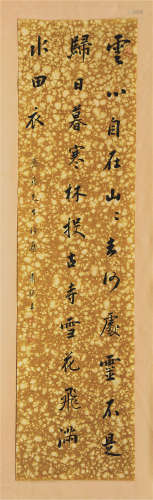 雲心自在山山去何處靈不是
歸日暮寒林投古寺雪花飛滿
水田衣